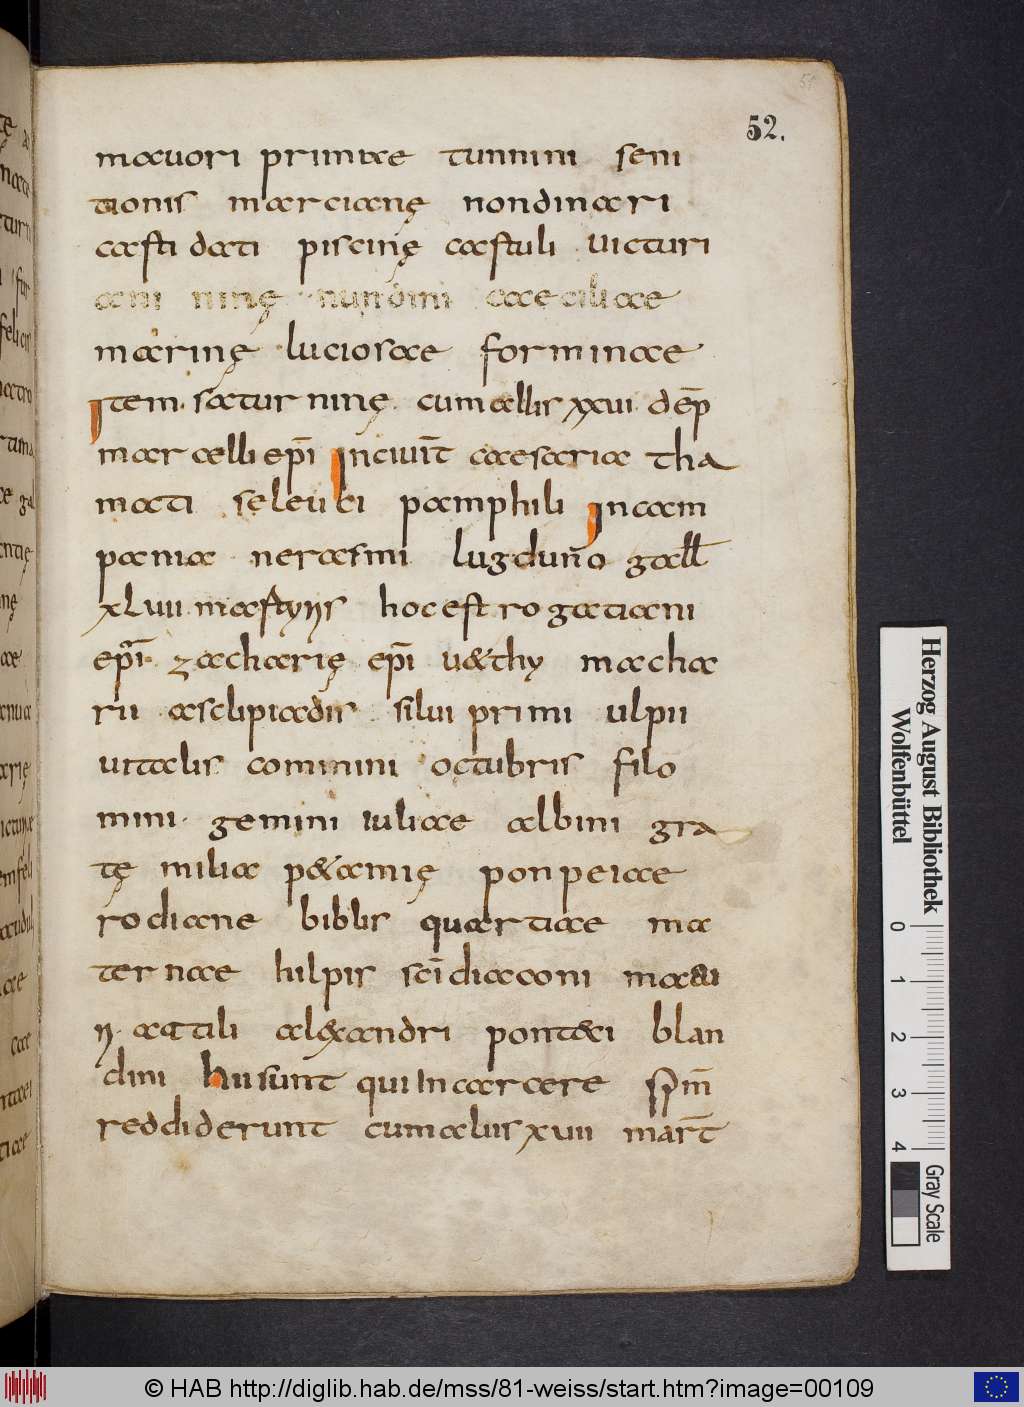 52.
mauori primae tunnini seni
tionis marcianę nondinari
casti dati piscinę castuli uicturi
ani ninę nunnini caeciliae
marinę luciosae forminae
Item saturninę cum aliis xxvii dep̄
marcelli epī In ciuit̄ caesaria tha
mati seleuci pamphili In cam
pania nerasmi lugduno gall̄
xlvii martyris hoc est rogatiani
epī zacharię epī uethy macha
rii asclipiadis silui primi ulpii
uitalis cominini octubris filo
mini gemini iuliae albini gra
tę milia petamię ponpeiae
rodiane biblis quartiae ma
ternae hilpis sci diaconi matu
ri attili alexandri pontici blan
dini hii sunt qui In carcere spm̄
reddiderunt cum aliis xviii mart̄
Herzog August Bibliothek
Wolfenbüttel
0 1 2 3 4
Gray Scale
© HAB http://diglib.hab.de/mss/81-weiss/start.htm?image=00109